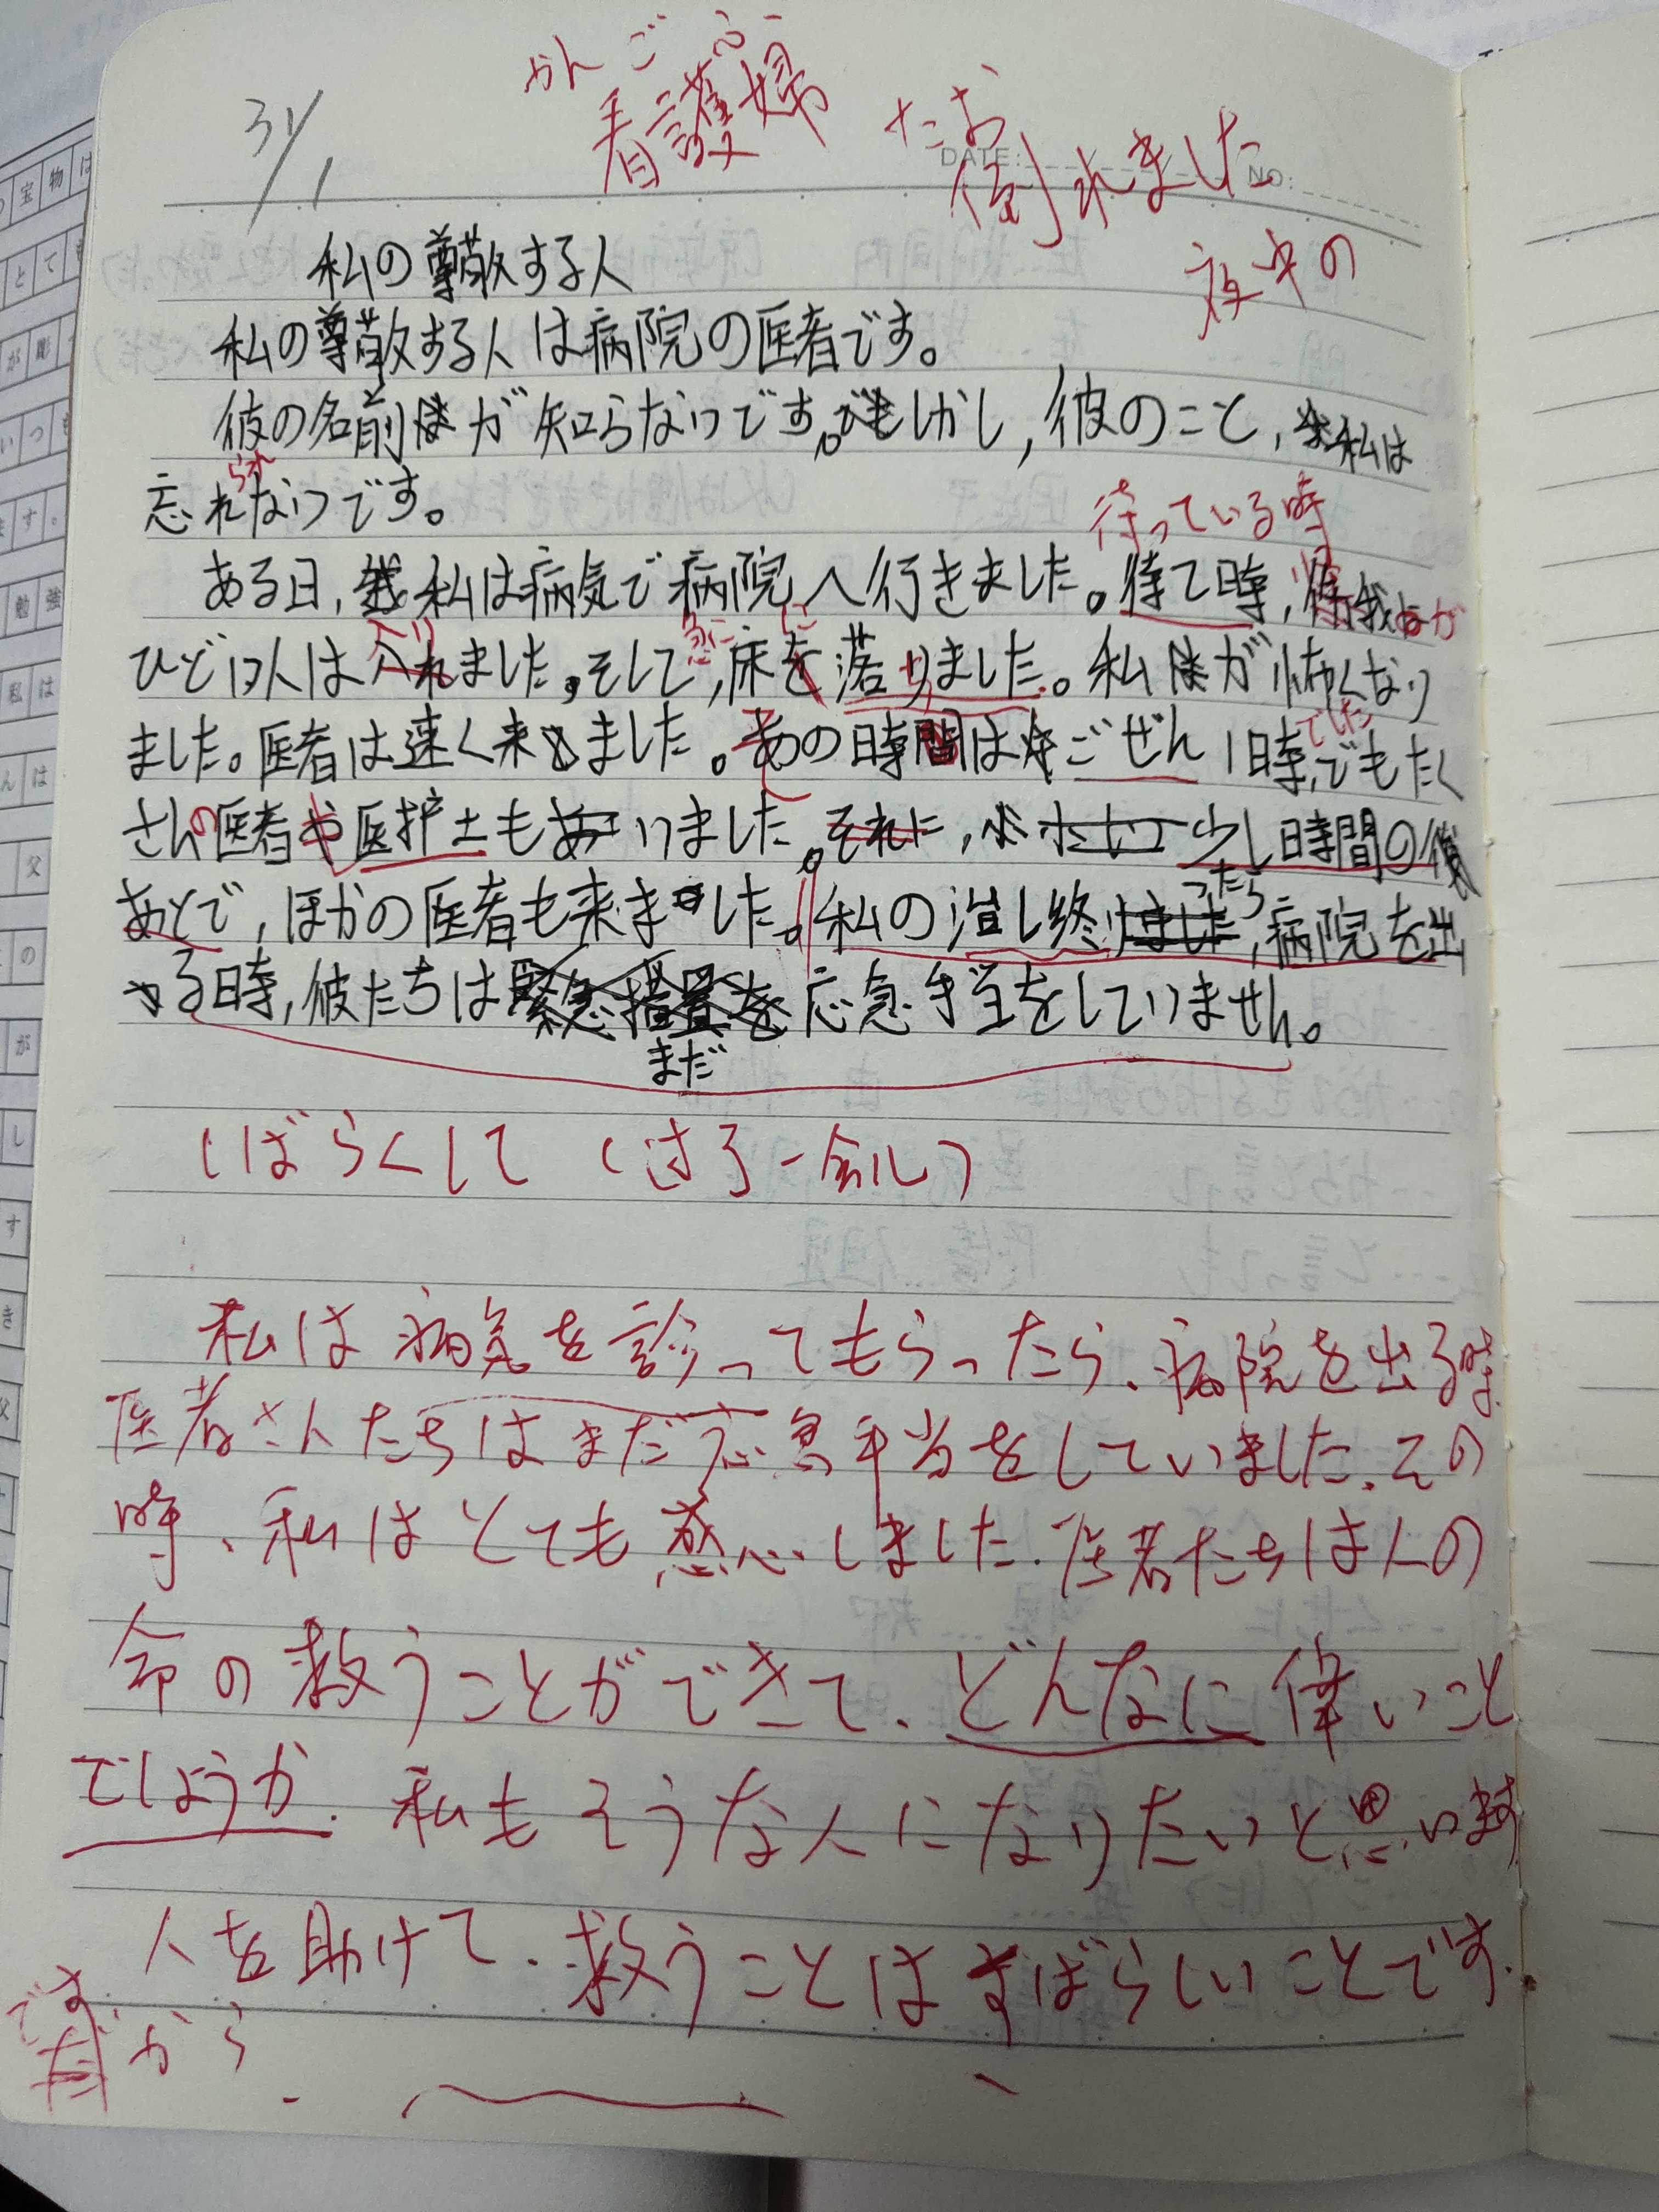 31/1
かんごふ
看護婦
たお
倒れました
DATE:
NO:
夜中の
私の尊敬する人
私の尊敬する人は病院の医者です。
彼の名前が知らないです。しかし,彼のこと,私は
られ
忘れないです。
待っている時
ある日,私は病気で病院へ行きました。待て時,怪我が
入り
急に
に
ひどい人は入れました。そして,床を落りました。私が怖くなり
でした
ました。医者は速く来ました。あの時間はごぜん1時,でもたく
そ
さんの医者や医护士もいました。それに,少し時間の後
あとで,ほかの医者も来ました。私の治し終ったら,病院を出
る時,彼たちは応急手当をしていません。
まだ
しばらくして (过了一会儿)
私は病気を診ってもらったら、病院を出る時
医者さんたちはまだ応急手当をしていました。その
時、私はとても感心しました。医者たちは人の
命の救うことができて、どんなに偉いこと
でしょうか。私もそうな人になりたいと思います
人を助けて、救うことはすばらしいことです。
です
から